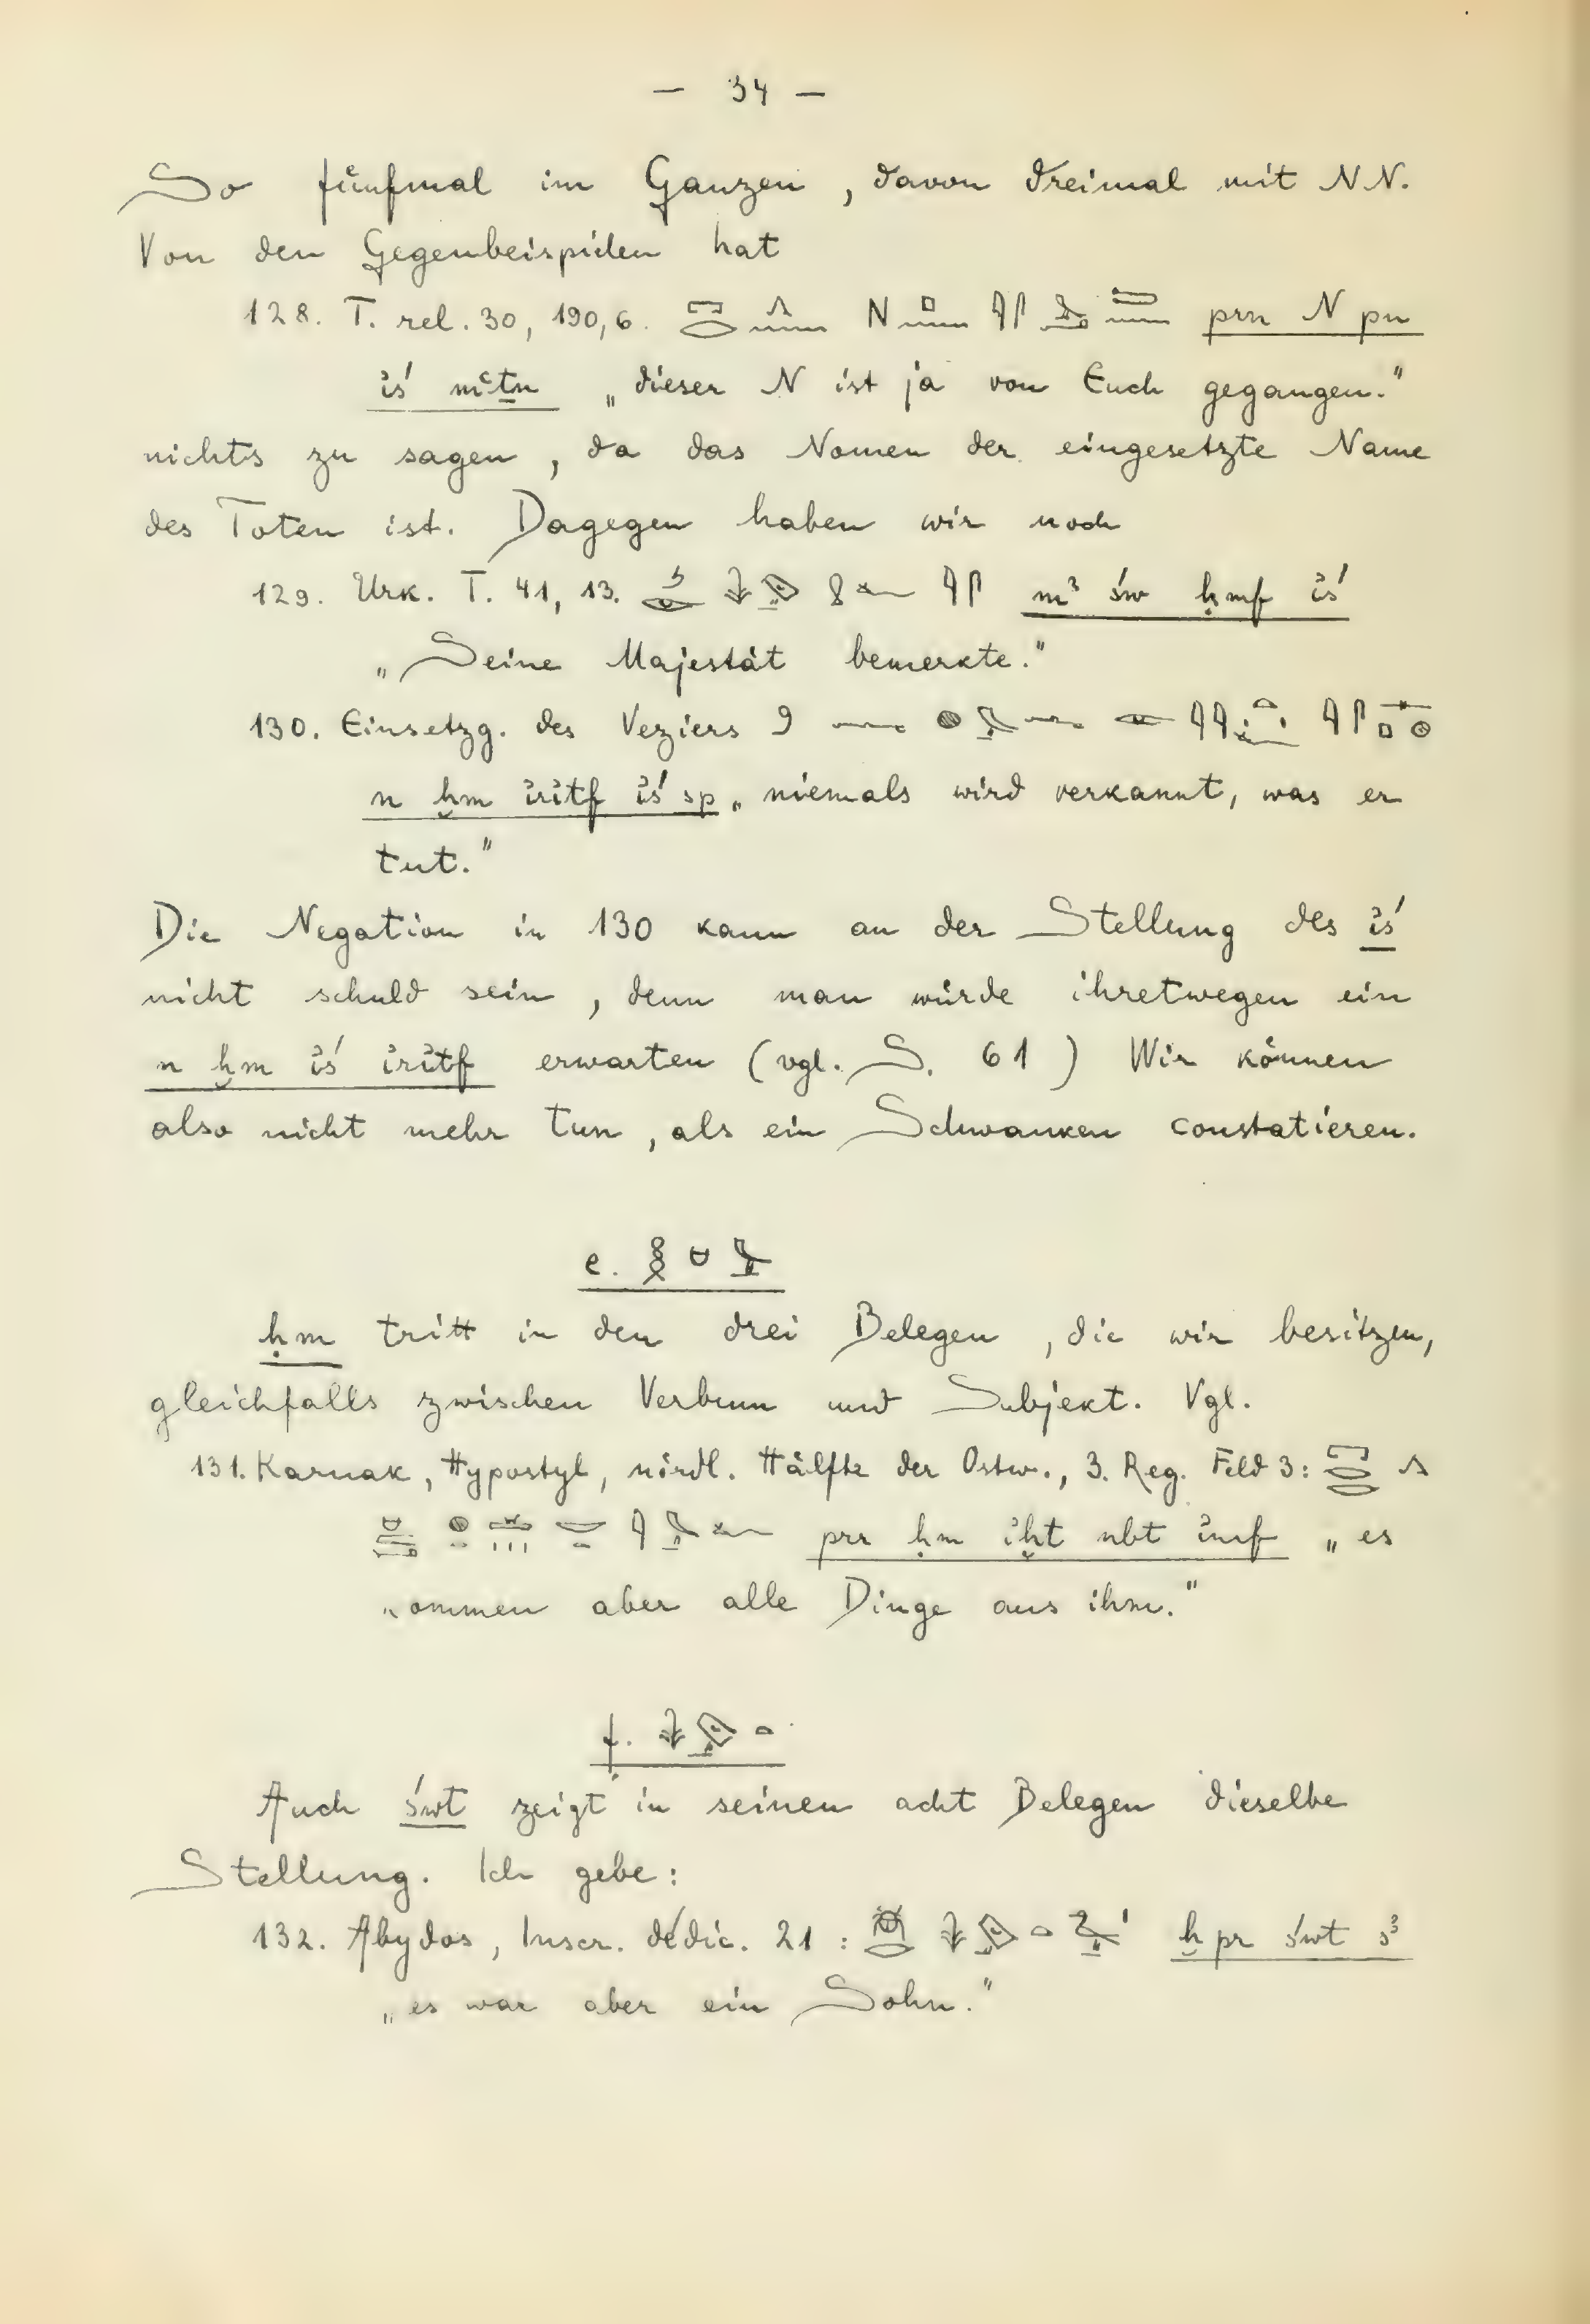 — 34 —
So fünfmal im Ganzen, davon dreimal mit NN.
Von den Gegenbeispielen hat
128. T. rel. 30, 190,6. N prn N pn
ı͗ś mꜥṯn „dieser N ist ja von Euch gegangen."
nichts zu sagen, da das Nomen der eingesetzte Name
des Toten ist. Dagegen haben wir noch
129. Urk. T. 41, 13. mꜣ św ḥmf ı͗ś
„Seine Majestät bemerkte."
130. Einsetzg. des Veziers 9
n ḫm ı͗rı͗tf ı͗ś sp „niemals wird verkannt, was er
tut."
Die Negation in 130 kann an der Stellung des ı͗ś
nicht schuld sein, denn man würde ihretwegen ein
n ḫm ı͗ś ı͗rı͗tf erwarten (vgl. S. 61) Wir können
also nicht mehr tun, als ein Schwanken constatieren.
e. 𓎛𓎡𓅓
ḥm tritt in den drei Belegen, die wir besitzen,
gleichfalls zwischen Verbum und Subjekt. Vgl.
131. Karnak, Hypostyl, nördl. Hälfte der Ostw., 3. Reg. Feld 3:
prr ḥm ı͗ḫt nbt ı͗mf „es
kommen aber alle Dinge aus ihm."
f. 𓇓𓅱𓏏
Auch śwt zeigt in seinen acht Belegen dieselbe
Stellung. Ich gebe:
132. Abydos, Inscr. dédic. 21: 𓆣𓂋 𓇓𓅱𓏏 𓅭𓏤 ḫpr śwt sꜣ
„es war aber ein Sohn."